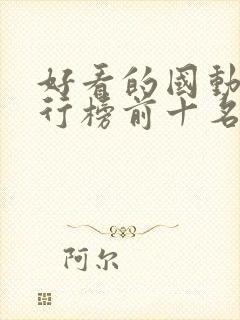 好看的國動
行榜前十名
阿尔